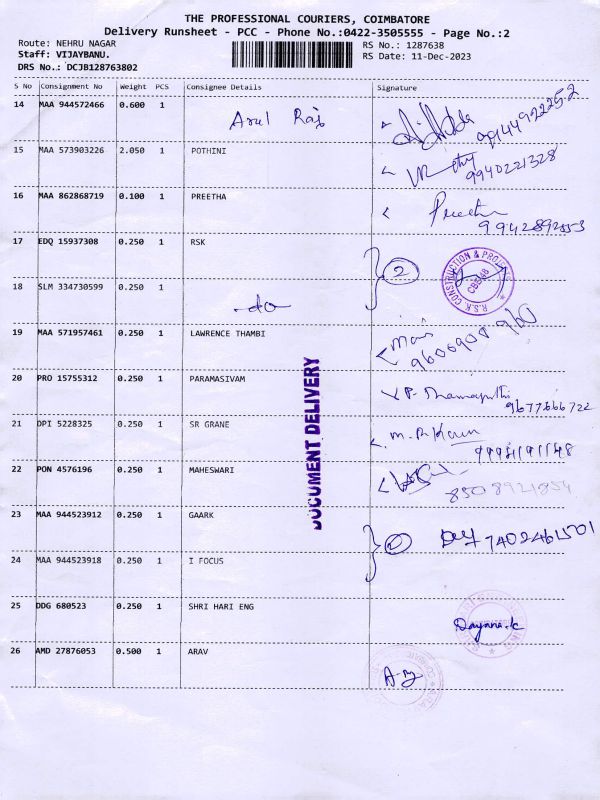 THE PROFESSIONAL COURIERS, COIMBATORE
Delivery Runsheet - PCC - Phone No.:0422-3505555 - Page No.:2
Route: NEHRU NAGAR RS No.: 1287638
Staff: VIJAYBANU. RS Date: 11-Dec-2023
DRS No.: DCJB128763802
S No Consignment No Weight PCS Consignee Details Signature
14 MAA 944572466 0.600 1 Arul Raj
15 MAA 573903226 2.050 1 POTHINI 9940221328
16 MAA 862868719 0.100 1 PREETHA Preetha
17 EDQ 15937308 0.250 1 RSK 2
R.S.K. CONSTRUCTION &
18 SLM 334730599 0.250 1 -do-
19 MAA 571957461 0.250 1 LAWRENCE THAMBI 9606908960
20 PRO 15755312 0.250 1 PARAMASIVAM 9677866722
21 DPI 5228325 0.250 1 SR GRANE
22 PON 4576196 0.250 1 MAHESWARI 8508921854
23 MAA 944523912 0.250 1 GAARK 7402461501
24 MAA 944523918 0.250 1 I FOCUS
25 DDG 680523 0.250 1 SHRI HARI ENG Dayana.k
26 AMD 27876053 0.500 1 ARAV
DOCUMENT DELIVERY